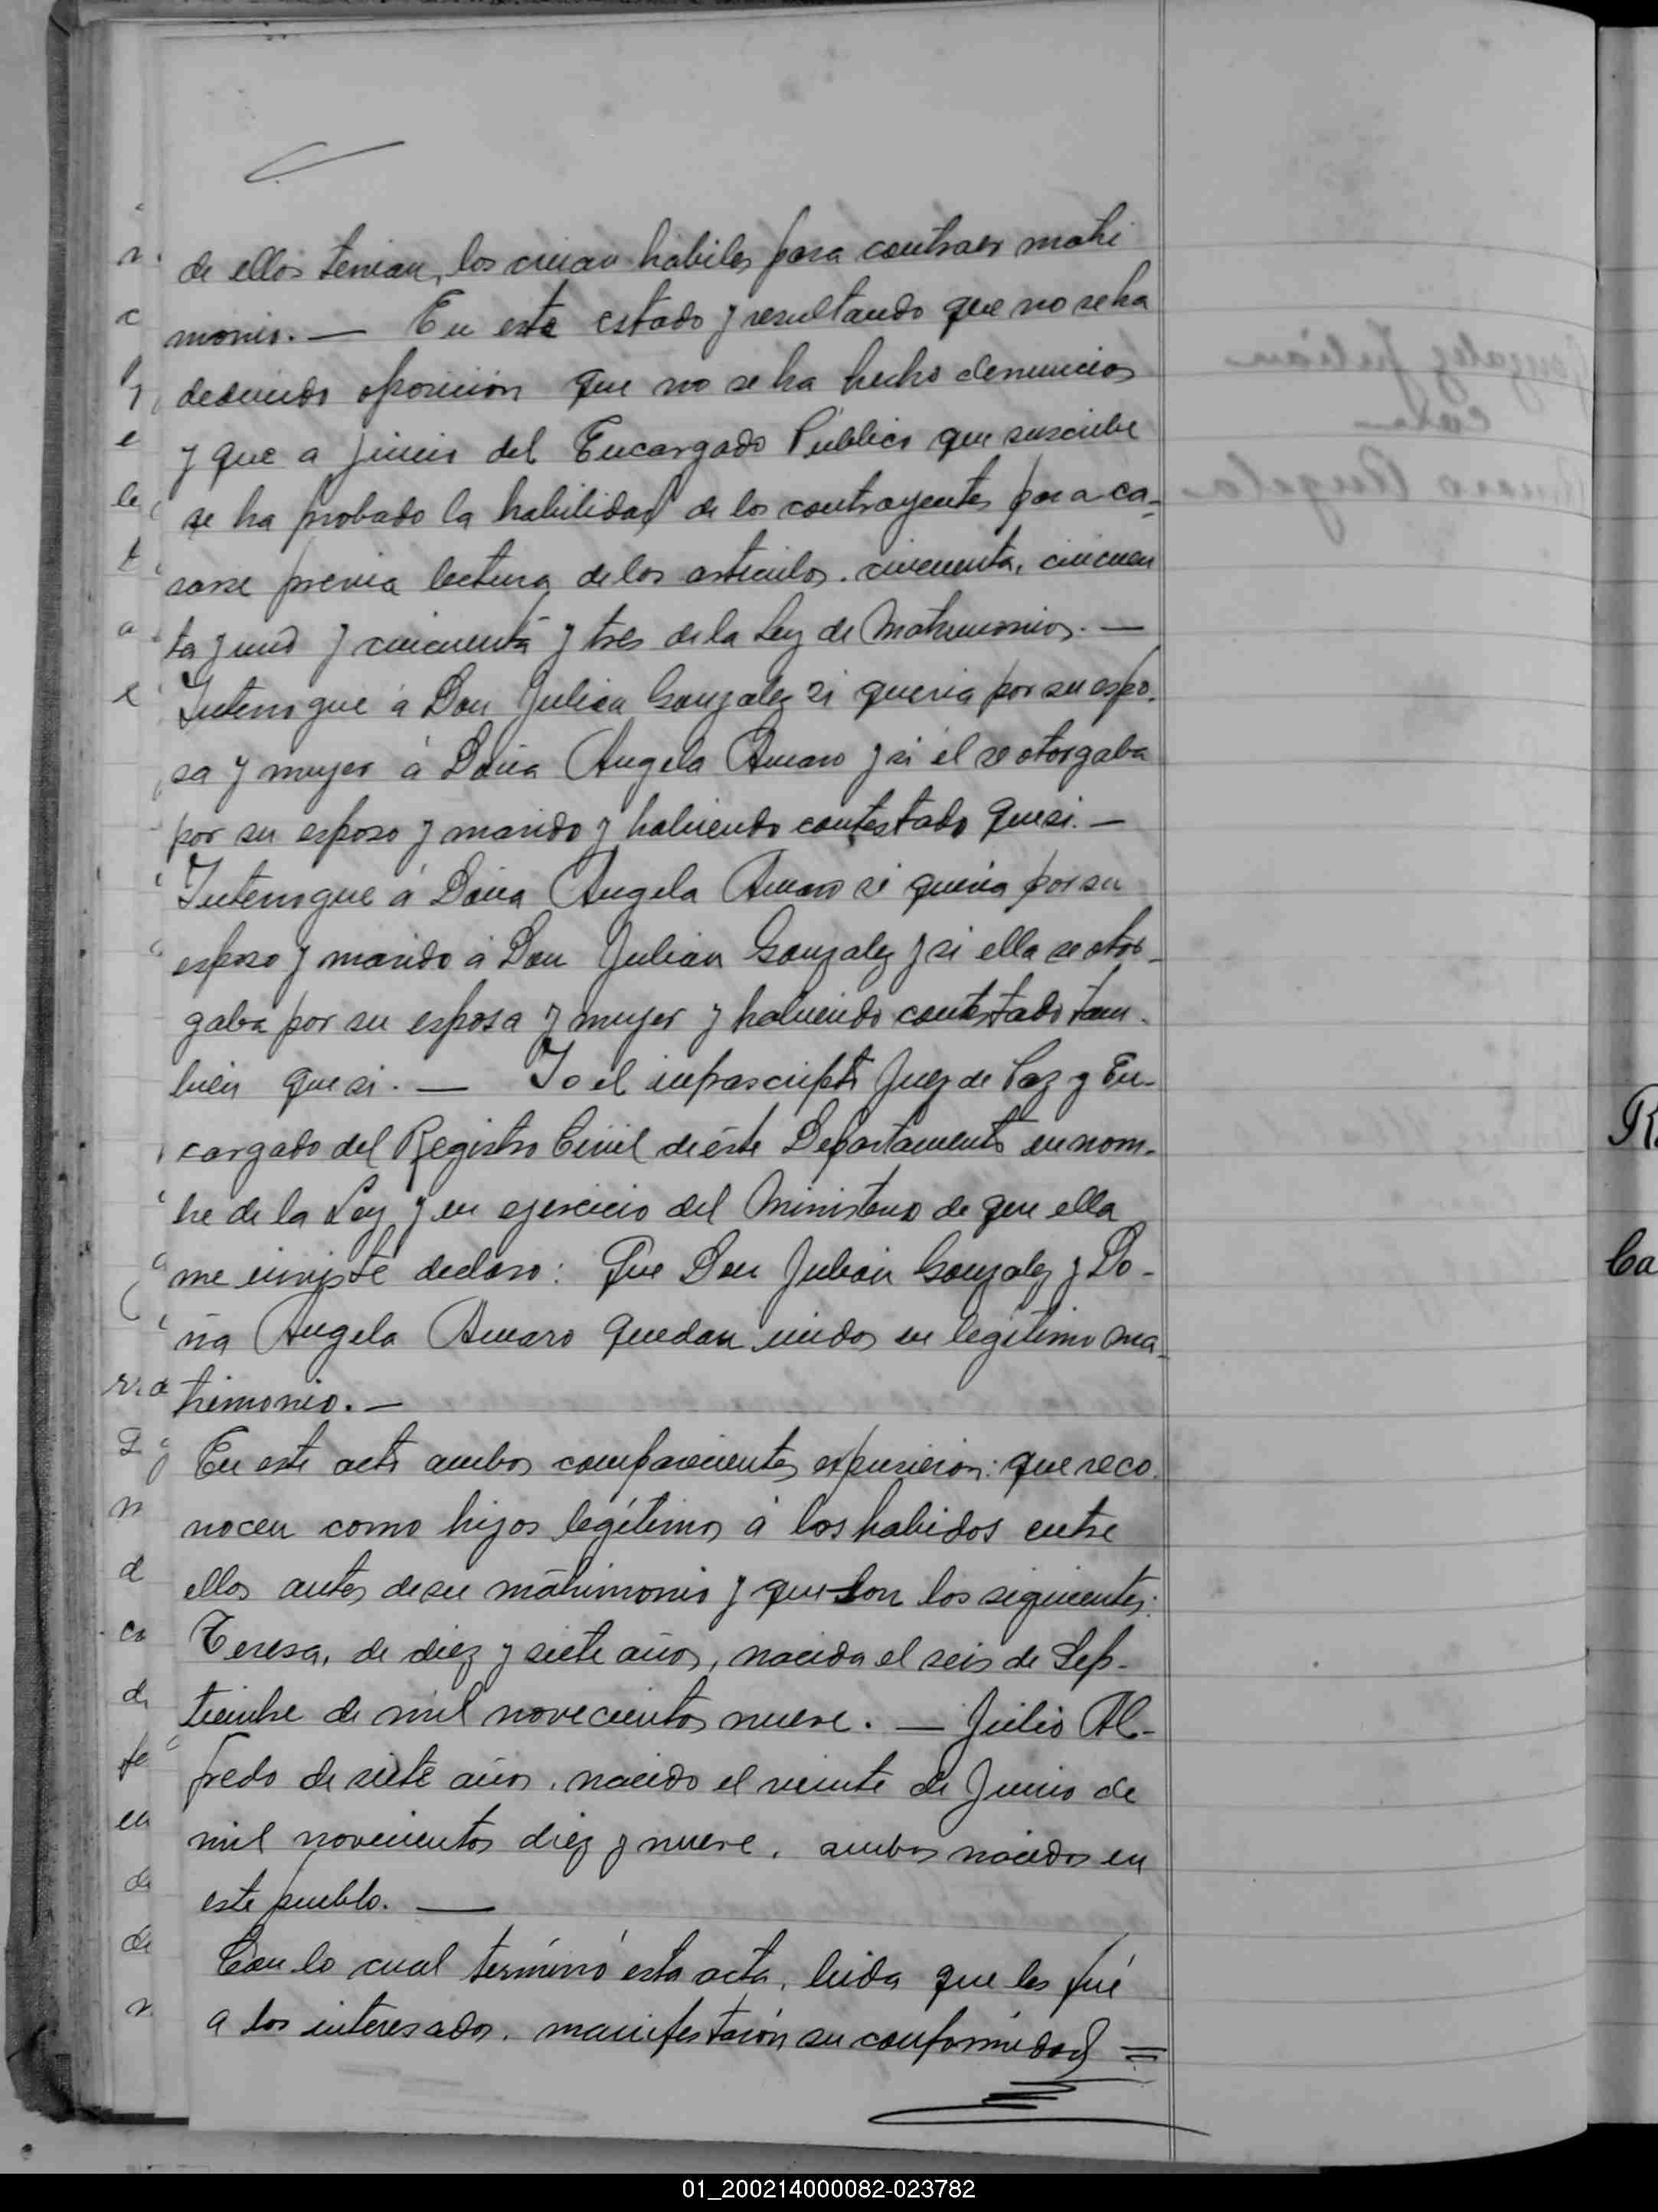 de ellos tenian, los creian habiles para contraer matri
monio. — En este estado y resultando que no se ha
deducido oposición que no se ha hecho denuncias
y que a juicio del Encargado Público que suscribe
se ha probado la habilidad de los contrayentes para ca-
sarse previa lectura de los articulos. cincuenta, cincuen
ta y uno y cincuenta y tres de la Ley de Matrimonios. —
Interrogué á Don Julian Gonzalez si queria por su espo-
sa y mujer á Doña Angela Amaro y si él se otorgaba
por su esposo y marido y habiendo contestado que si. —
Interrogué á Doña Angela Amaro si queria por su
esposo y marido á Don Julian Gonzalez y si ella se otor-
gaba por su esposa y mujer y habiendo contestado tam-
bien que si. — Yo el infrascripto Juez de Paz y En-
cargado del Registro Civil de éste Departamento en nom-
bre de la Ley y en ejercicio del Ministerio de que ella
me inviste declaro: Que Don Julián Gonzalez y Do-
ña Angela Amaro quedan unidos en legítimo ma-
trimonio. —
En este acto ambos comparecientes expusieron: que reco-
nocen como hijos legítimos á los habidos entre
ellos antes de su matrimonio y que son los siguientes:
Teresa, de diez y siete años, nacida el seis de Sep-
tiembre de mil novecientos nueve. — Julio Al-
fredo de siete años, nacido el veinte de Junio de
mil novecientos diez y nueve, ambos nacidos en
este pueblo. —
Con lo cual terminó esta acta, leida que les fué
a los interesados, manifestarón su conformidad =
01_200214000082-023782